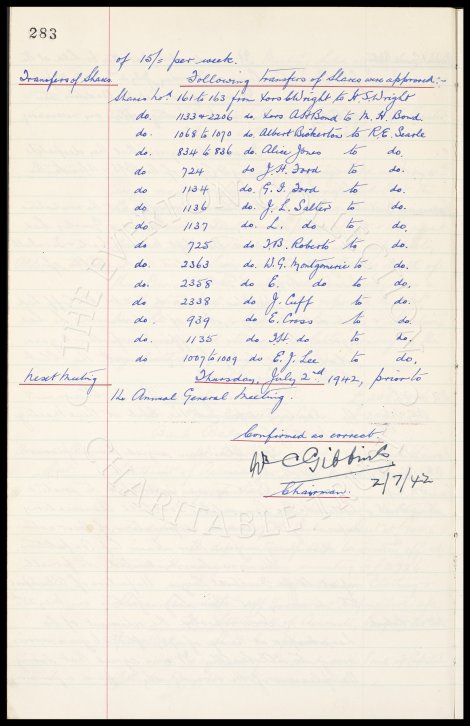 283
of 15/= per week.
Transfers of Shares Following transfers of Shares were approved:-
Shares Nos. 161 to 163 from Exors C. Wright to H. S. Wright
do. 1133 & 2206 do. Exors A. H. Bond to M. H. Bond.
do. 1068 to 1070 do. Albert Brockerton to R. E. Searle
do. 834 to 836 do. Alice Jones to do.
do 724 do J. H. Ford to do.
do 1134 do. G. J. Ford to do.
do 1136 do. J. L. Salter to do.
do 1137 do. L. do to do.
do 725 do J. B. Roberts to do.
do. 2363 do. W. G. Montgomerie to do.
do 2358 do E. do to do.
do 2338 do J. Cuff to do.
do. 939 do E. Cross to do.
do. 1135 do J. H. do to do.
do 1007 to 1009 do E. J. Lee to do.
Next Meeting Thursday, July 2nd 1942, prior to
the Annual General Meeting.
Confirmed as correct.
Wm C Gibbins
Chairman. 2/7/42
THE EVERTON COLLECTION
CHARITABLE TRUST